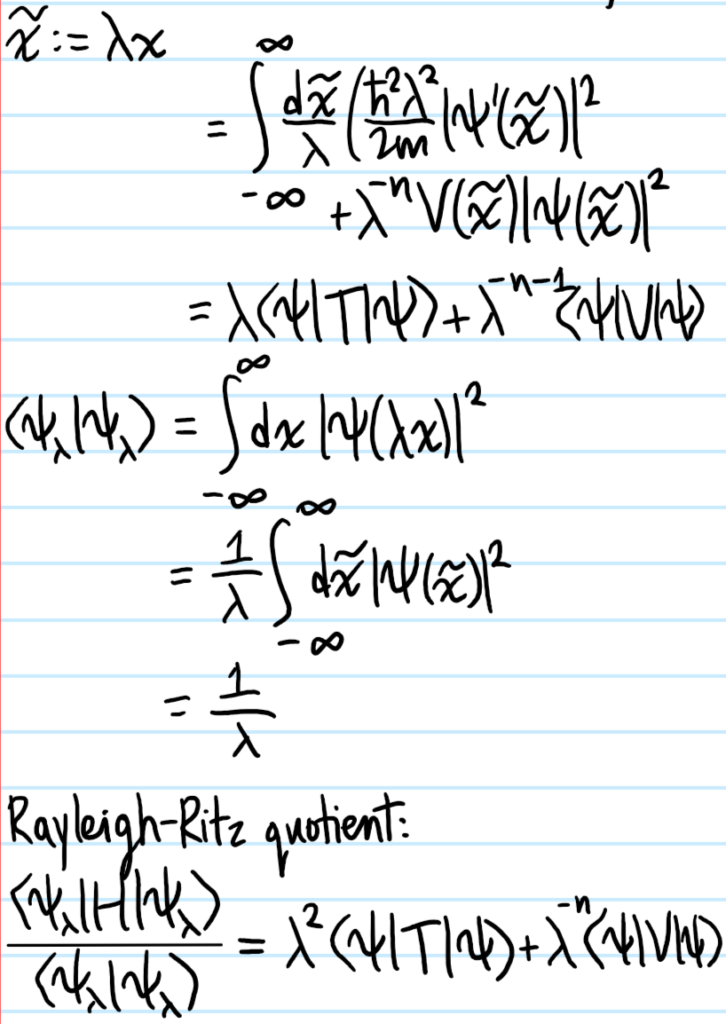 x̃ := λx
= ∫_{-∞}^{∞} dx̃/λ (ħ²λ²/2m |ψ'(x̃)|²
+ λ^{-n} V(x̃)|ψ(x̃)|²
= λ⟨ψ|T|ψ⟩ + λ^{-n-1}⟨ψ|V|ψ⟩
⟨ψ_λ|ψ_λ⟩ = ∫_{-∞}^{∞} dx |ψ(λx)|²
= 1/λ ∫_{-∞}^{∞} dx̃ |ψ(x̃)|²
= 1/λ
Rayleigh-Ritz quotient:
⟨ψ_λ|H|ψ_λ⟩/⟨ψ_λ|ψ_λ⟩ = λ²⟨ψ|T|ψ⟩ + λ^{-n}⟨ψ|V|ψ⟩